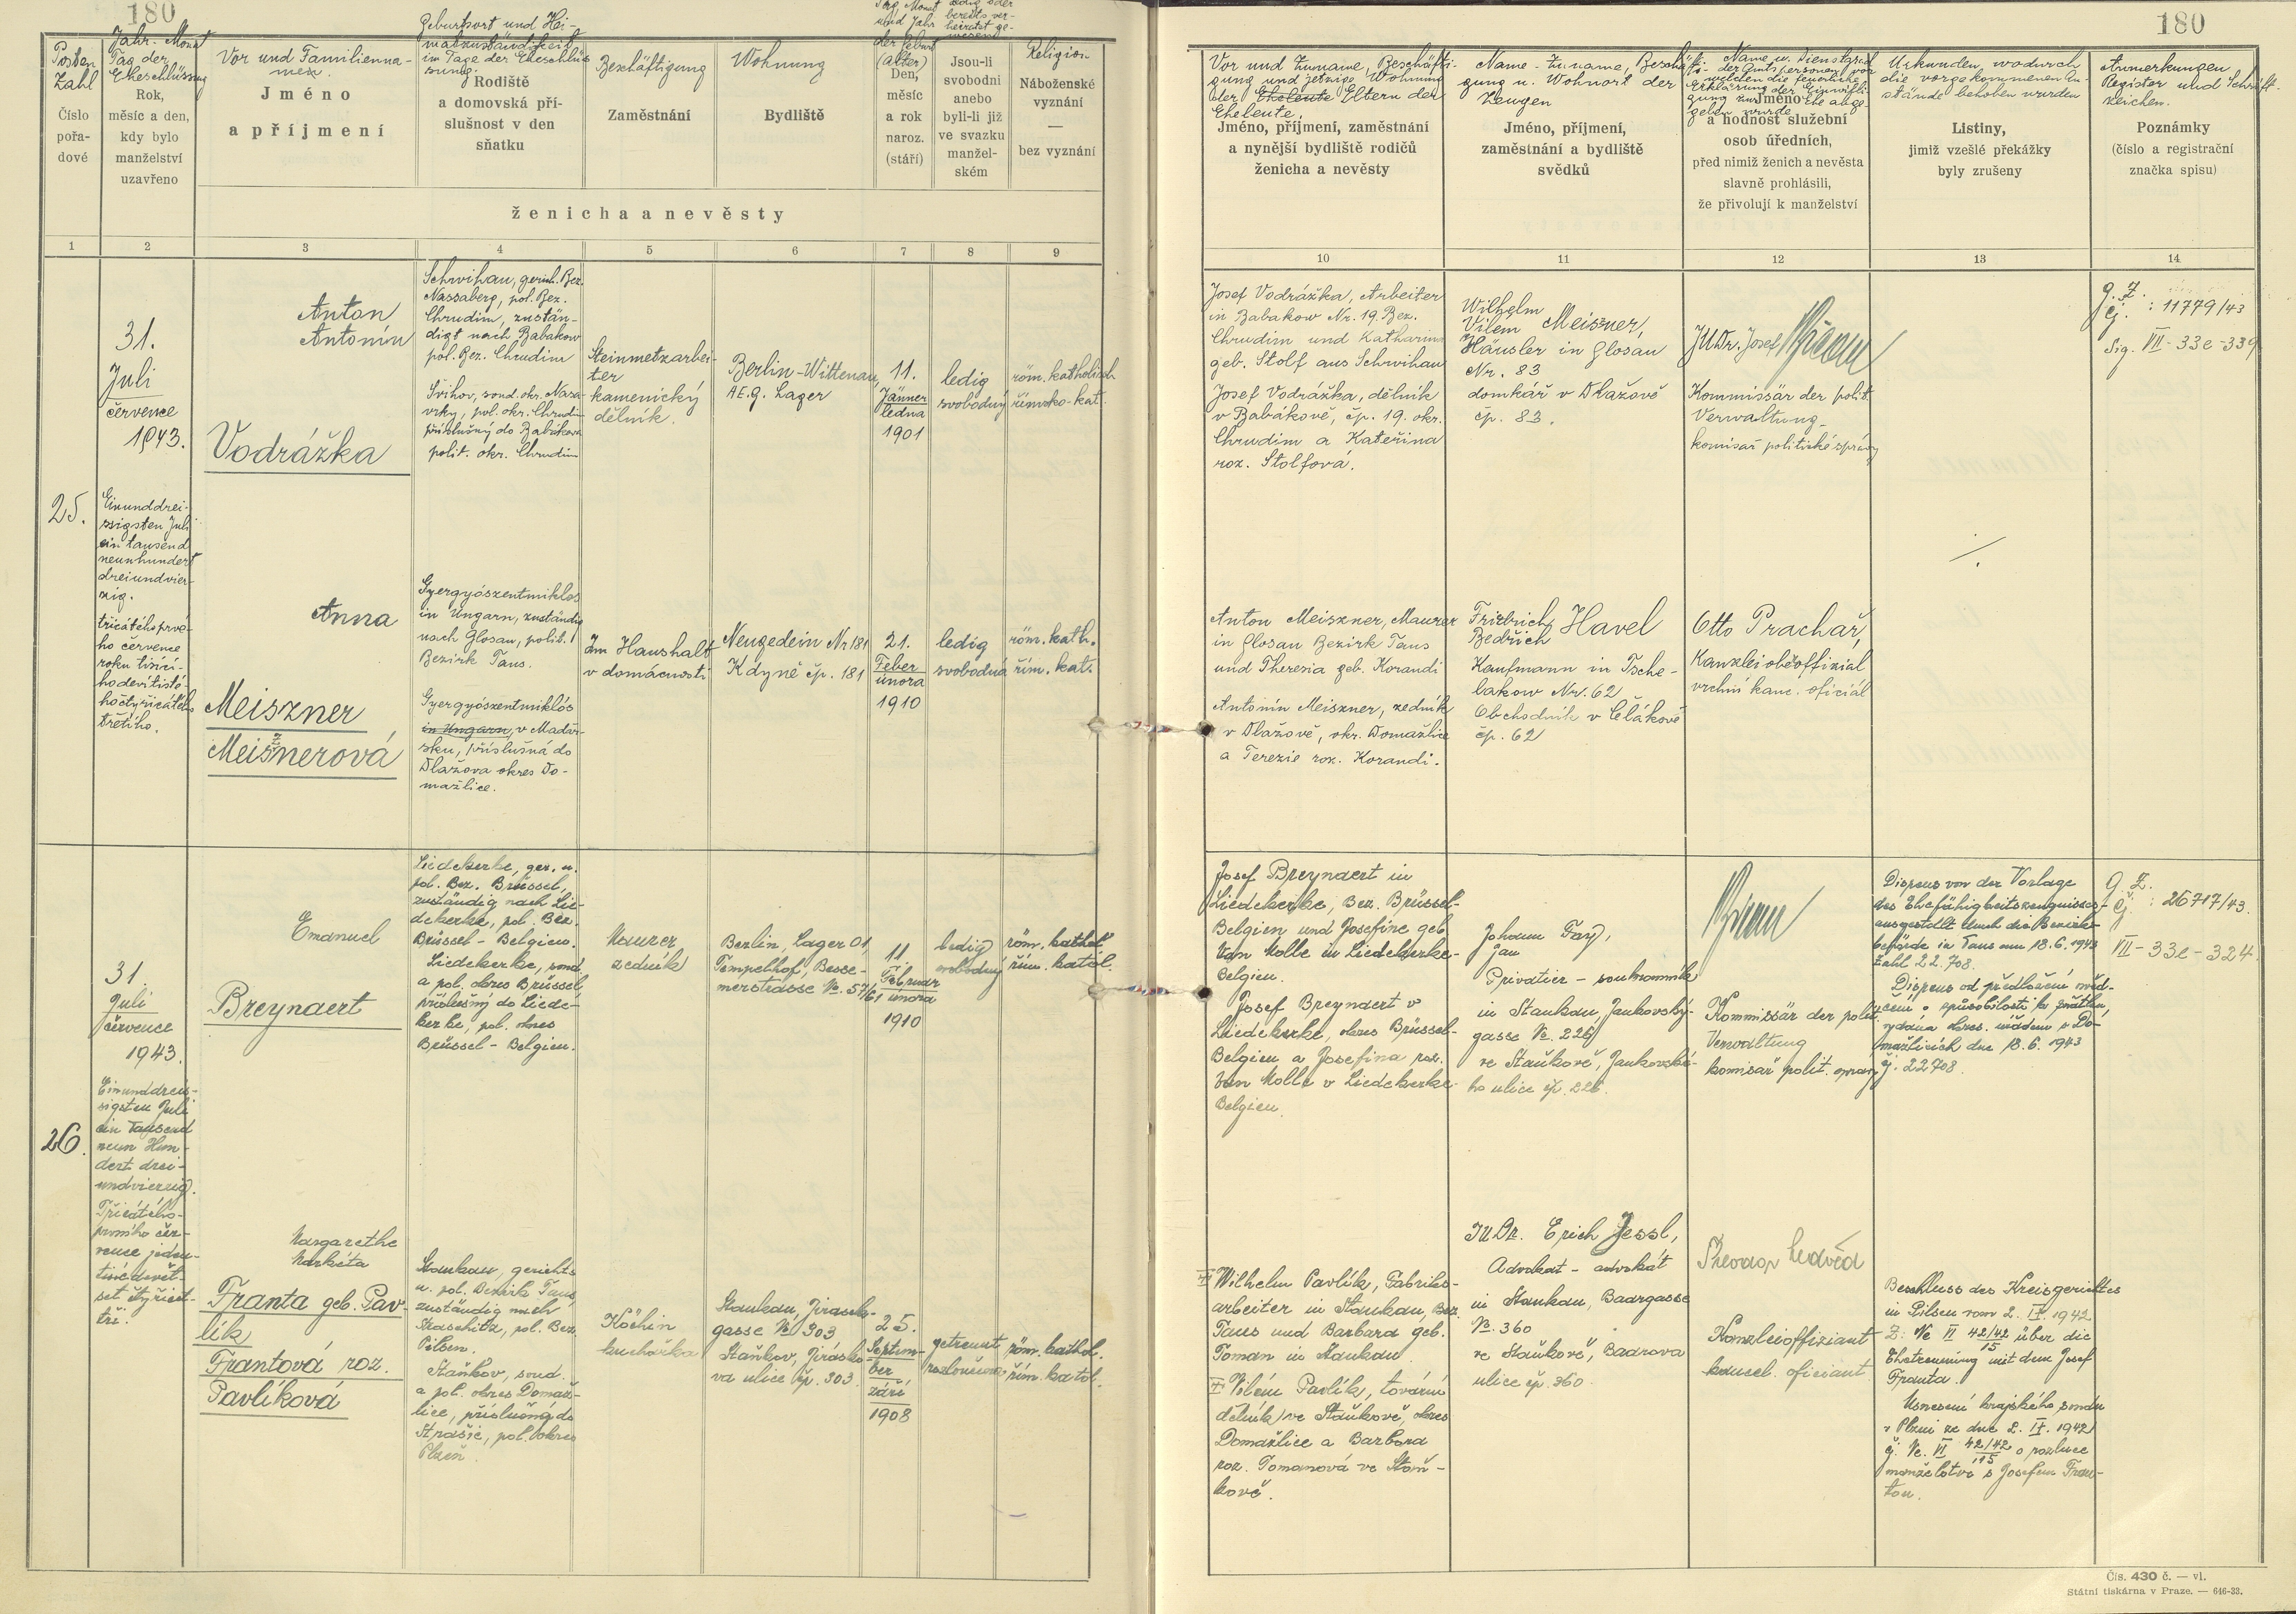 180
Posten
Zahl
Číslo
pořa-
dové
Jahr-Monat
Tag der
Eheschliessung
Rok,
měsíc a den,
kdy bylo
manželství
uzavřeno
Vor und Familienna-
men.
Jméno
a příjmení
Geburtsort und Hei-
matzuständigkeit
im Tage der Eheschlies-
sung.
Rodiště
a domovská pří-
slušnost v den
sňatku
Beschäftigung
Zaměstnání
Wohnung
Bydliště
Tag, Monat
und Jahr
der Geburt
(Alter)
Den,
měsíc
a rok
naroz.
(stáří)
ledig oder
bereits ver-
heiratet ge-
wesend
Jsou-li
svobodni
anebo
byli-li již
ve svazku
manžel-
ském
Religion
Náboženské
vyznání
—
bez vyznání
ženicha a nevěsty
1 2 3 4 5 6 7 8 9
25.
31.
Juli
července
1943.
Einunddrei-
ssigsten Juli
ein tausend
neunhundert
dreiundvier-
zig.
třicátého prvé-
ho července
roku tisící-
ho devítisté-
ho čtyřicátého
třetího.
Anton
Antonín
Vodrážka
Schwihau, gerich. Bez.
Nassaberg, pol. Bez.
Chrudim, zustän-
digt nach Babakow
pol. Bez. Chrudim
Švihov, soud. okr. Nasa-
vrky, pol. okr. Chrudim
příslušný do Babákova
polit. okr. Chrudim
Steinmetzarbei-
ter
kamenický
dělník.
Berlin-Wittenau,
AEG. Lager
11.
Jänner
ledna
1901
ledig
svobodný
röm. katholisch
římsko-kat.
Anna
Meiszner
Meisznerová
Gyergyószentmiklos
in Ungarn, zuständig
nach Glosau, polit.
Bezirk Taus.
Gyergyószentmiklós
in Ungarn, v Maďar-
sku, příslušná do
Dlažova okres Do-
mažlice.
Im Haushalt
v domácnosti
Neugedein Nr 181
Kdyně čp. 181
21.
Feber
února
1910
ledig
svobodná
röm. kath.
řím. kat.
26.
31
Juli
července
1943.
Einunddreis-
sigsten Juli
ein Tausend
neun Hun-
dert drei-
undvierzig.
Třicátého-
prvního čer-
vence jeden-
tisícdevět-
set čtyřicet-
tři.
Emanuel
Breynaert
Liedekerke, ger. u.
pol. Bez. Brüssel,
zuständig nach Lie-
dekerke, pol. Bez.
Brüssel - Belgien.
Liedekerke, soud.
a pol. okres Brüssel,
příslušný do Liede-
kerke, pol. okres
Brüssel - Belgien.
Maurer
zedník
Berlin, Lager 01,
Tempelhof, Besse-
merstrasse Nr. 57/61
11.
Februar
února
1910
ledig
svobodný
röm. kathol.
řím. katol.
Margarethe
Markéta
Franta geb. Pav-
lik
Frantová roz.
Pavlíková
Staukau, gerichts
u. pol. Bezirk Taus,
zuständig nach
Straschitz, pol. Bez.
Pilsen.
Staňkov, soud.
a pol. okres Domaž-
lice, příslušná do
Strašic, pol. okres
Plzeň.
Köchin
kuchařka
Staukau, Jirasek-
gasse Nr 303
Staňkov, Jirásko-
va ulice čp. 303
25.
Septem-
ber
září
1908
getrennt
rozloučena
röm. kathol.
řím. katol.
180
Vor und Zuname, Beschäfti-
gung und jetzige Wohnung
der Eheleute Eltern der
Eheleute.
Jméno, příjmení, zaměstnání
a nynější bydliště rodičů
ženicha a nevěsty
Name - Zuname, Beschäfti-
gung u. Wohnort der
Zeugen
Jméno, příjmení,
zaměstnání a bydliště
svědků
Name u. Dienstgrad
der Amtspersonen, vor
welchen die feierliche
Erklärung der Einwilli-
gung zur Ehe abge-
geben wurde
Jméno
a hodnost služební
osob úředních,
před nimiž ženich a nevěsta
slavně prohlásili,
že přivolují k manželství
Urkunden, wodurch
die vorgekommenen An-
stände behoben wurden
Listiny,
jimiž vzešlé překážky
byly zrušeny
Anmerkungen
Register und Schrift-
zeichen.
Poznámky
(číslo a registrační
značka spisu)
10 11 12 13 14
Josef Vodrážka, Arbeiter
in Babakow Nr. 19. Bez.
Chrudim und Katharina
geb. Stolf aus Schwihau
Josef Vodrážka, dělník
v Babákově, čp. 19. okr.
Chrudim a Kateřina
roz. Stolfová.
Wilhelm
Vilém Meiszner,
Häusler in Glosau
Nr. 83
domkář v Dlažově
čp. 83.
JUDr. Josef
Kommissär der polit.
Verwaltung
komisař politické správy
G. Z.
čj. : 11779/43
Sig. VII-33e-339
Anton Meiszner, Maurer
in Glosau Bezirk Taus
und Theresia geb. Korandi
Antonín Meiszner, zedník
v Dlažově, okr. Domažlice
a Terezie roz. Korandi.
Friedrich
Bedřich Havel
Kaufmann in Tsche-
lakow Nr. 62
Obchodník v Člákově
čp. 62
Otto Prachař,
Kanzleioberoffizial
vrchní kanc. oficiál
Josef Breynaert in
Liedekerke, Bez. Brüssel-
Belgien und Josefine geb.
Van Molle in Liedekerke-
Belgien.
Josef Breynaert v
Liedekerke, okres Brüssel-
Belgien a Josefina roz.
Van Molle v Liedekerke-
Belgien.
Johann Fay,
Jan
Privatier - soukromník
in Staukau, Jankovský-
gasse Nr. 226
ve Staňkově, Jankovské-
ho ulice čp. 226.
Kommissär der polit.
Verwaltung
komisař polit. správy
Dispens von der Vorlage
des Ehefähigkeitszeugnisses
ausgestellt durch die Bezirks-
behörde in Taus am 18.6.1943
Zahl 22.708.
Dispens od předložení osvěd-
čení o způsobilosti ke sňatku,
vydána okres. úřadem v Do-
mažlicích dne 18.6. 1943
čj. 22708.
G. Z.
čj. : 26717/43.
VII-33e-324
Wilhelm Pavlík, Fabriks-
arbeiter in Staukau, Bez.
Taus und Barbara geb.
Toman in Staukau.
Vilém Pavlík, tovární
dělník ve Staňkově, okres
Domažlice a Barbora
roz. Tomanová ve Staň-
kově.
JUDr. Erich Jessl,
Advokat - advokát
in Staukau, Baargasse
Nr. 360
ve Staňkově, Baarova
ulice čp. 360.
Kanzleioffiziant
kancel. oficiant
Beschluss des Kreisgerichtes
in Pilsen vom 2. IX. 1942
Z: Nc VI 42/42/15 über die
Ehetrennung mit dem Josef
Franta.
Usnesení krajského soudu
v Plzni ze dne 2. IX. 1942
čj. Nc. VI 42/42/15 o rozluce
manželství s Josefem Fran-
tou.
Čís. 430 č. — vl.
Státní tiskárna v Praze. — 646-33.